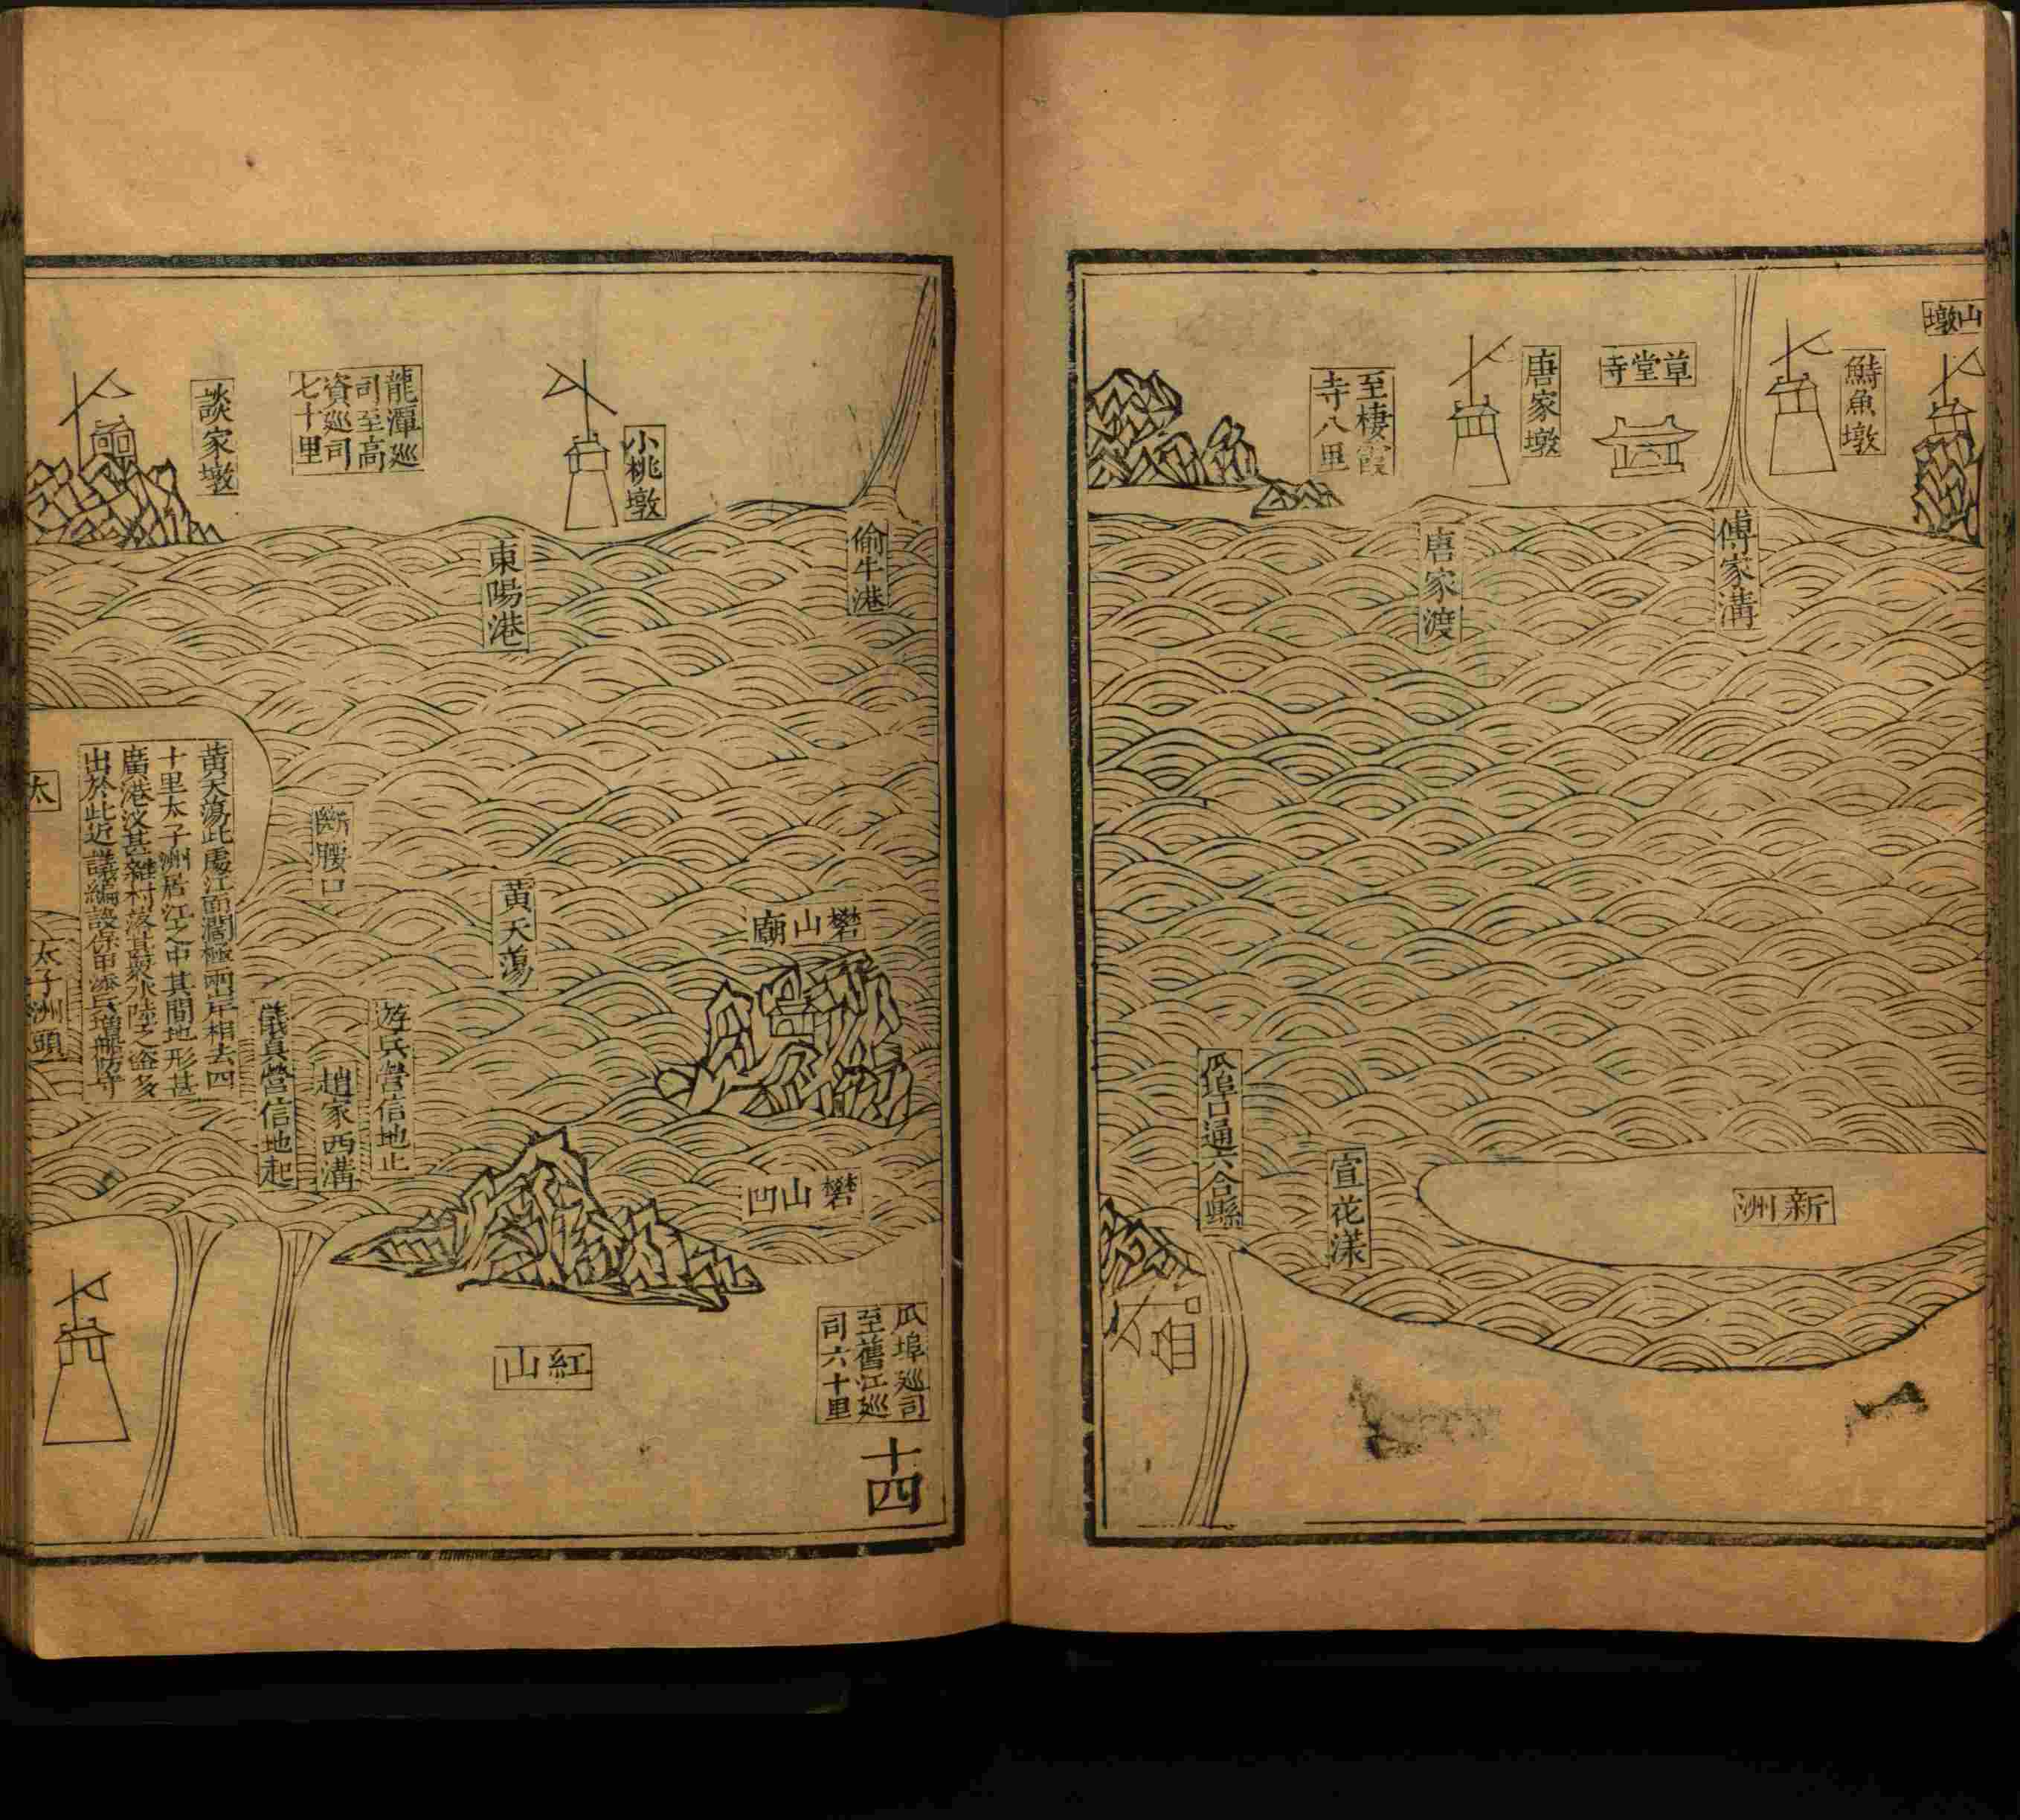 山墩
鰣魚墩
草堂寺
唐家墩
至棲霞
寺八里
傅家溝
唐家渡
新洲
宣花漾
瓜埠口通六合縣
偷牛港
小桃墩
龍潭巡
司至高
資巡司
七十里
談家墩
東陽港
礬山廟
黃天蕩
斷腰口
黃天蕩此處江面闊極兩岸相去四
十里太子洲居江之中其間地形甚
廣港汊甚雜村落甚衆水陸之盜多
出於此近議編設保甲添兵增船防守
太
太子洲頭
礬山凹
遊兵營信地止
趙家西溝
儀真營信地起
紅山
瓜埠巡司
至舊江巡
司六十里
十四